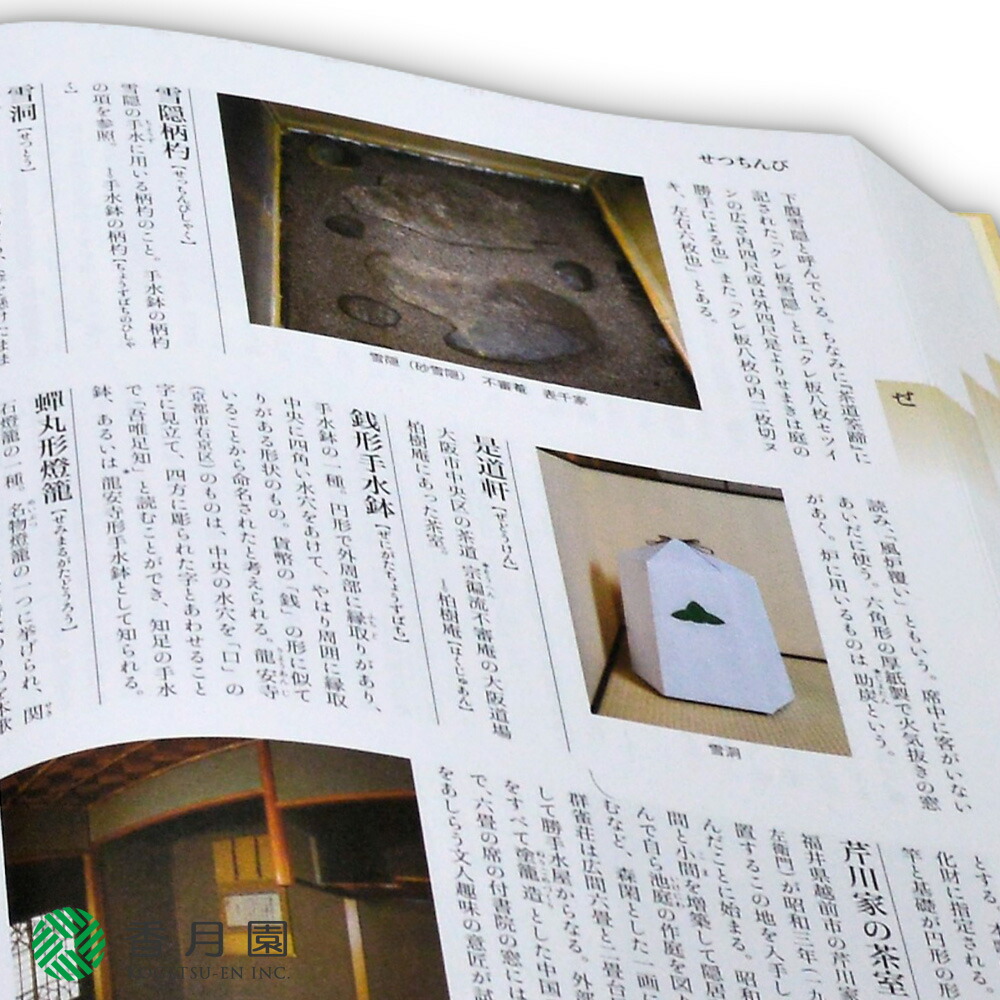 せつちんび
ぜ
下腹雪隠と呼んでいる。ちなみに『茶道筌蹄』に
記された「クレ板雪隠」とは「クレ板八枚セツイ
ンの広サ内四尺或は外四尺足よりせまきは庭の
勝手による也」また「クレ板八枚の内二枚切ヌ
キ、左右六枚也」とある。
雪隠(砂雪隠) 不審菴 表千家
雪隠柄杓【せっちんびしゃく】
雪隠の手水に用いる柄杓のこと。手水鉢の柄杓
の項を参照。 →手水鉢の柄杓【ちょうずばちのひしゃ
く】
雪洞【せつとう】
読み「風炉覆い」ともいう。席中に客がいない
あいだに使う。六角形の厚紙製で火気抜きの窓
があく。炉に用いるものは助炭という。
雪洞
是道軒【ぜどうけん】
大阪市中央区の茶道宗徧流不審庵の大阪道場
柏樹庵にあった茶室。 →柏樹庵【はくじゅあん】
銭形手水鉢【ぜにがたちょうずばち】
手水鉢の一種。円形で外周部に縁取りがあり、
中央に四角い水穴をあけて、やはり周囲に縁取
りがある形状のもの。貨幣の「銭」の形に似て
いることから命名されたと考えられる。龍安寺
(京都市右京区)のものは、中央の水穴を「口」の
字に見立て、四方に彫られた字とあわせること
で「吾唯足知」と読むことができ、知足の手水
鉢、あるいは龍安寺形手水鉢として知られる。
蟬丸形燈籠【せみまるがたどうろう】
石燈籠の一種。名物燈籠の一つに挙げられ、関
化財に指定され
竿と基礎が円形の形
芹川家の茶室
福井県越前市の芹川家
左衛門)が昭和三年(一九
置するこの地を入手し
んだことに始まる。昭和
間と小間を増築して隠居
んで自ら池庭の作庭を図
むなど、森閑とした一画に
群雀荘は広間六畳と二畳台
して勝手水屋からなる。外部
をすべて塗籠造とした中国
で、六畳の席の付書院の窓には
をあしらう文人趣味の意匠が試
香月園
KOHGETSU-EN INC.